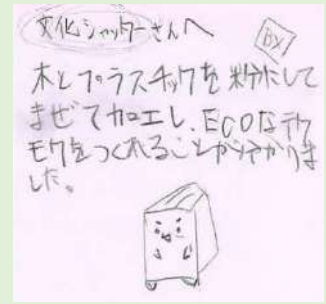 文化シャッターさんへ
BX
木とプラスチックを粉にして
まぜてカエし、ECOなテク
モクをつくれることが分かりま
した。